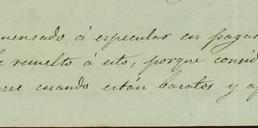 menzado á especular en paga
resuelto á esto, porque consid
arse cuando están baratos y a